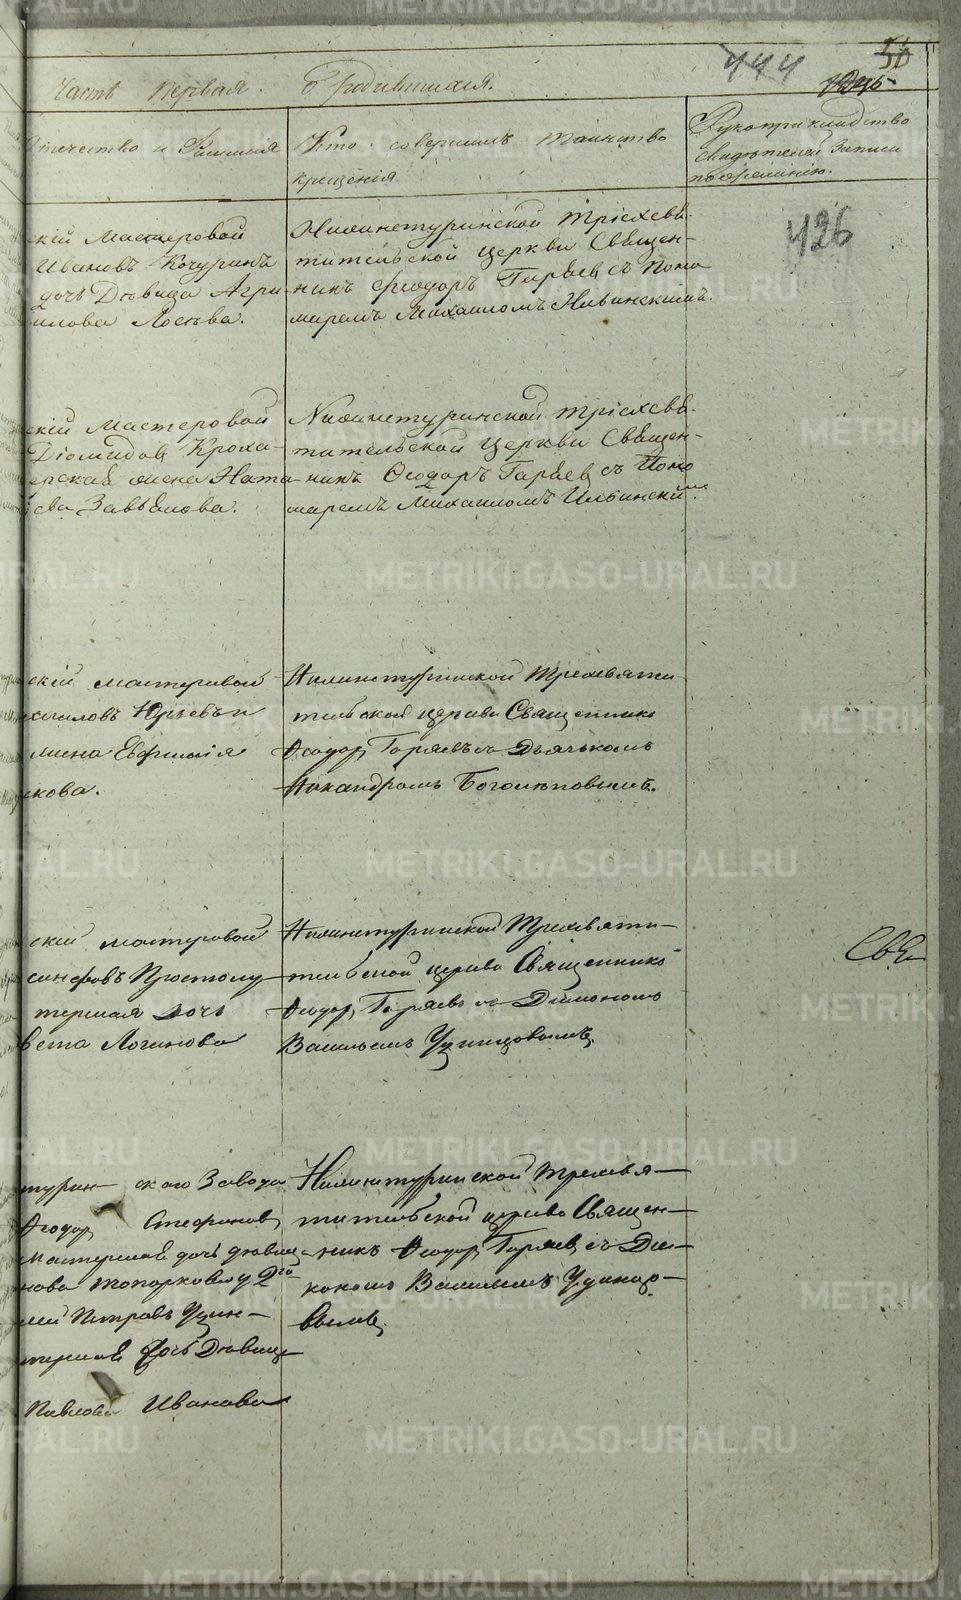 Часть первая. О родившихся.
444
50
Отчество и Фамилія
Кто совершалъ таинство
крещенія
Рукоприкладство
свидѣтелей записи
по желанію.
426
скій Мастеровой
Ивановъ Кочуринъ
дочь Дѣвица Агри
пилова Лосева.
Нижнетуринской Трiсхсвя-
тительской церкви Священ-
никъ Феодоръ Гаряевъ съ Поно
маремъ Михаиломъ Ильинскимъ.
скій Мастеровой
Діомидовъ Кроха-
терская жена Ната
Завьялова.
Нижнетуринской Трiсхсвя-
тительской церкви Священ-
никъ Ѳеодоръ Гаряевъ съ Поно
маремъ Михаиломъ Ильинскимъ.
скій мастеровой
хаиловъ Юрьевъ и
жена Евфимія
кова.
Нижнетуринской Трехсвяти
тельской церкви Священникъ
Ѳеодоръ Гаряевъ съ Дьячькомъ
Никандромъ Боголѣповымъ.
скій мастеровой
синфовъ Простолу
терская дочь
вета Логинова
Нижнетуринской Трехсвяти-
тельской церкви Священникъ
Ѳеодоръ Гаряевъ съ Діякономъ
Васильемъ Удинцовымъ.
Свя
турин- скаго Завода
Ѳеодоръ Стефановъ
Мастерская дочь дѣвица
нова Топоркова у 2го
лей Петровъ Удин-
терская дочь Дѣвица
Павлова Иванова
Нижнетуринской трехсвя-
тительской церкви Священ-
никъ Ѳеодоръ Гаряевъ съ Дія-
кономъ Васильемъ Удинцо-
вымъ.
METRIKI.GASO-URAL.RU